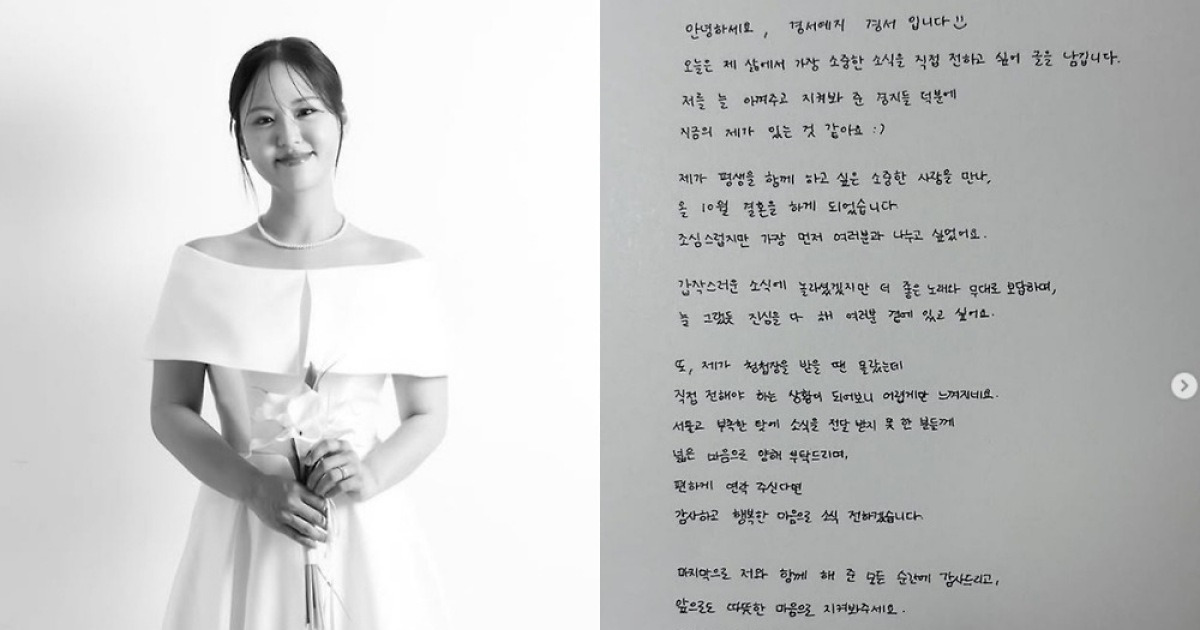 안녕하세요, 경서예지 경서 입니다
오늘은 제 삶에서 가장 소중한 소식을 직접 전하고 싶어 글을 남깁니다.
저를 늘 아껴주고 지켜봐 준 경지들 덕분에
지금의 제가 있는 것 같아요 :)
제가 평생을 함께 하고 싶은 소중한 사람을 만나,
올 10월 결혼을 하게 되었습니다
조심스럽지만 가장 먼저 여러분과 나누고 싶었어요.
갑작스러운 소식에 놀라셨겠지만 더 좋은 노래와 무대로 보답하며,
늘 그랬듯 진심을 다 해 여러분 곁에 있고 싶어요.
또, 제가 청첩장을 받을 땐 몰랐는데
직접 전해야 하는 상황이 되어보니 어렵게만 느껴지네요.
서툴고 부족한 탓에 소식을 전달 받지 못 한 분들께
넓은 마음으로 양해 부탁드리며,
편하게 연락 주신다면
감사하고 행복한 마음으로 소식 전하겠습니다.
마지막으로 저와 함께 해 준 모든 순간에 감사드리고,
앞으로도 따뜻한 마음으로 지켜봐주세요.